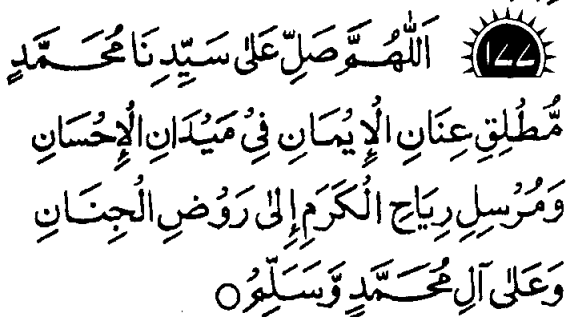 ۱۷۷ اَللّٰهُمَّ صَلِّ عَلٰى سَيِّدِنَا مُحَمَّدٍ
مُّطْلِقِ عِنَانِ الْاِيْمَانِ فِىْ مَيْدَانِ الْاِحْسَانِ
وَمُرْسِلِ رِيَاحِ الْكَرَمِ اِلٰى رَوْضِ الْجِنَانِ
وَعَلٰى آلِ مُحَمَّدٍ وَّسَلِّمْ ○